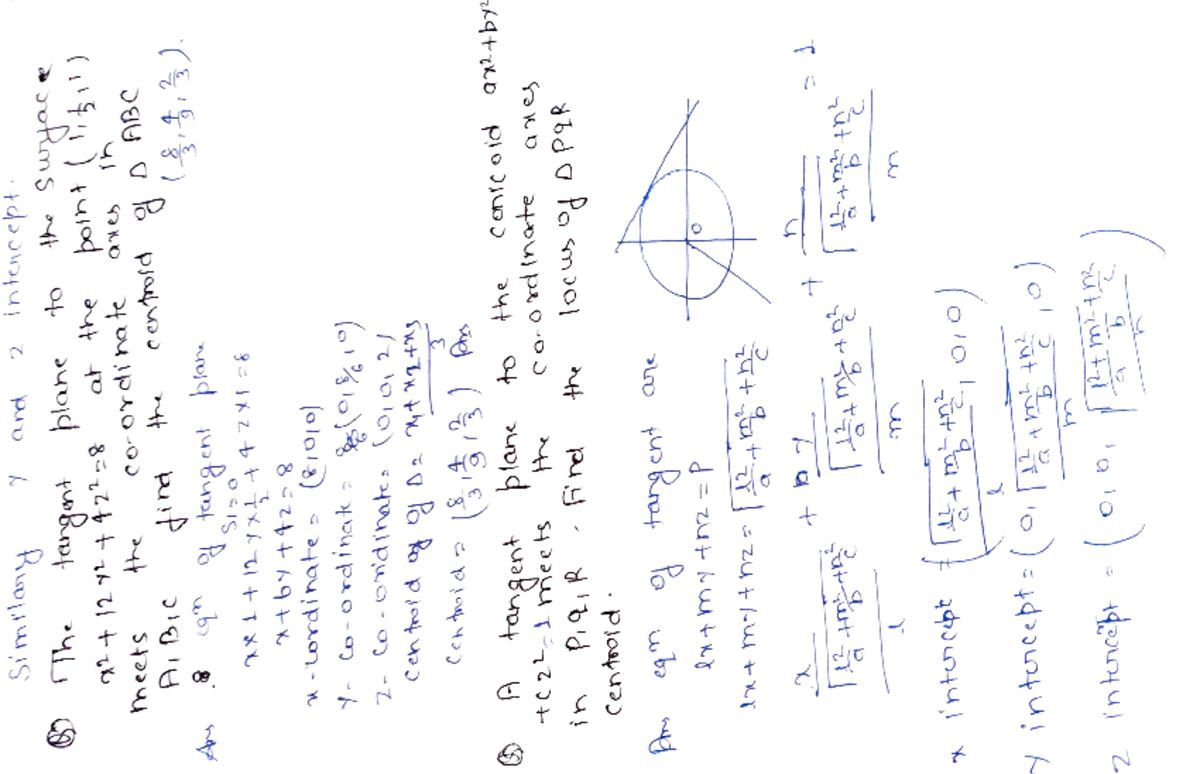 Similary y and z intercept.
Q5 The tangent plane to the surface
x² + 12y² + 4z² = 8 at the point (1, 1/2, 1)
meets the co-ordinate axes in
A, B, C find the centroid of Δ ABC
Ans eqn of tangent plane (8/3, 4/9, 2/3).
S1 = 0
xx1 + 12y x 1/2 + 4zx1 = 8
x + 6y + 4z = 8
x - cordinate = (8,0,0)
y - co-ordinate = (0, 8/6, 0)
z - co-oridinate = (0,0,2)
centroid of Δ = x1 + x2 + x3 / 3
centroid = (8/3, 4/9, 2/3) Ans
Q A tangent plane to the conicoid ax² + by²
+ cz² = 1 meets the co-ordinate axes
in P, Q, R. Find the locus of Δ PQR
centroid.
Ans eqn of tangent are
lx + my + nz = P
lx + my + nz = √(l²/a + m²/b + n²/c)
x / (√(l²/a + m²/b + n²/c) / l) + by / (√(l²/a + m²/b + n²/c) / m) + n / (√(l²/a + m²/b + n²/c) / m) = 1
O
x intercept = (√(l²/a + m²/b + n²/c) / l, 0, 0)
y intercept = (0, √(l²/a + m²/b + n²/c) / m, 0)
z intercept = (0, 0, √(l²/a + m²/b + n²/c) / n)